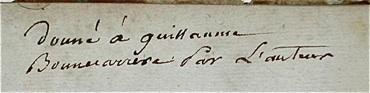 donné á guillaume
Bonnecarrere Par L'auteur